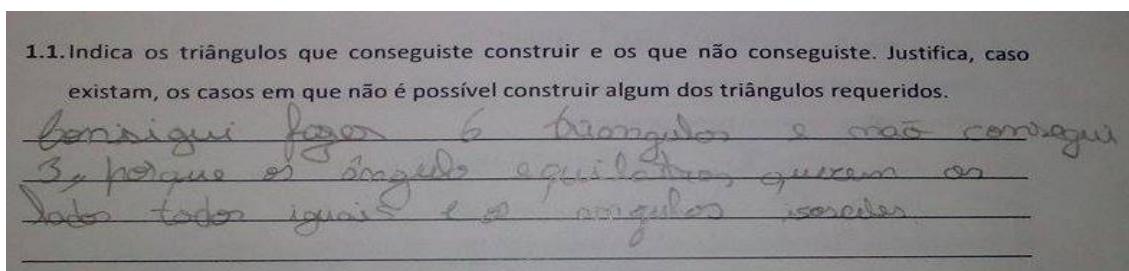 1.1. Indica os triângulos que conseguiste construir e os que não conseguiste. Justifica, caso
existam, os casos em que não é possível construir algum dos triângulos requeridos.
Consigui fazer 6 triangulos e não consegui
3, porque os ângulo equilatros querem os
lados todos iguais e os angulos isosceles